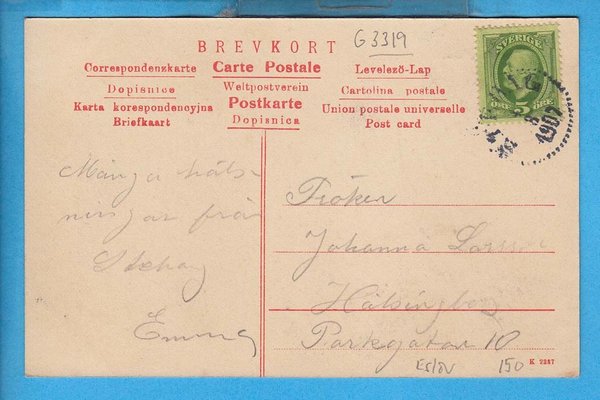 BREVKORT
G 3319
Correspondenzkarte
Carte Postale
Levelező-Lap
Dopisnice
Weltpostverein
Cartolina postale
Karta korespondencyjna
Postkarte
Union postale universelle
Briefkaart
Dopisnica
Post card
SVERIGE
5
ÖRE ÖRE
Många häls-
ningar från
Emma
Fröken
Johanna Larsson
Hälsingborg
Parkgatan 10
K 2287
Eslöv 150